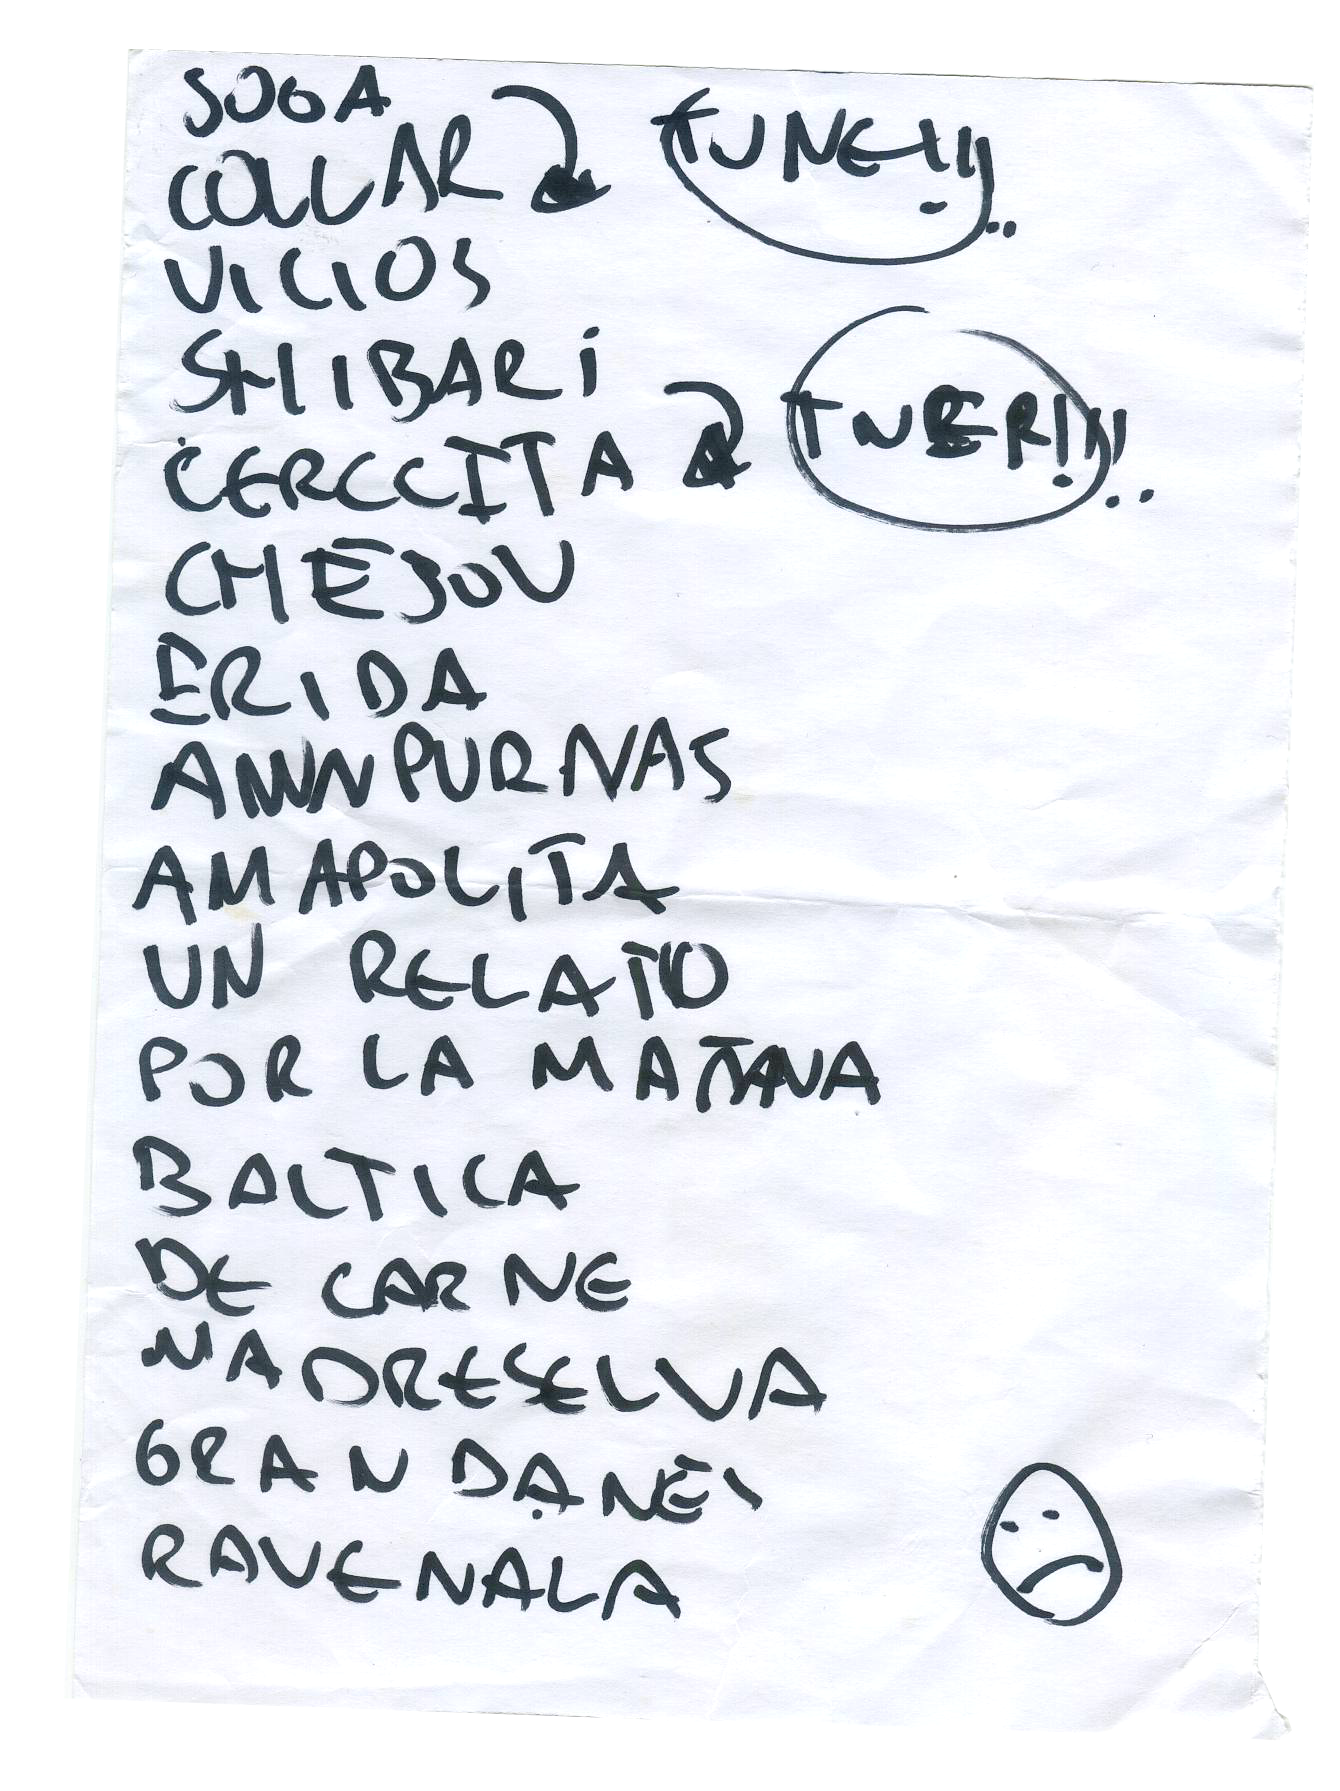 SOGA
COLLAR TUNE!!!...
VICIOS
SHIBARI
CERCCITA TUNER!!!...
CHEJOV
ERIDA
ANNNPURNAS
AMAPOLITA
UN RELATO
POR LA MAÑANA
BALTICA
DE CARNE
MADRESELVA
GRAN DANÉS
RAVENALA